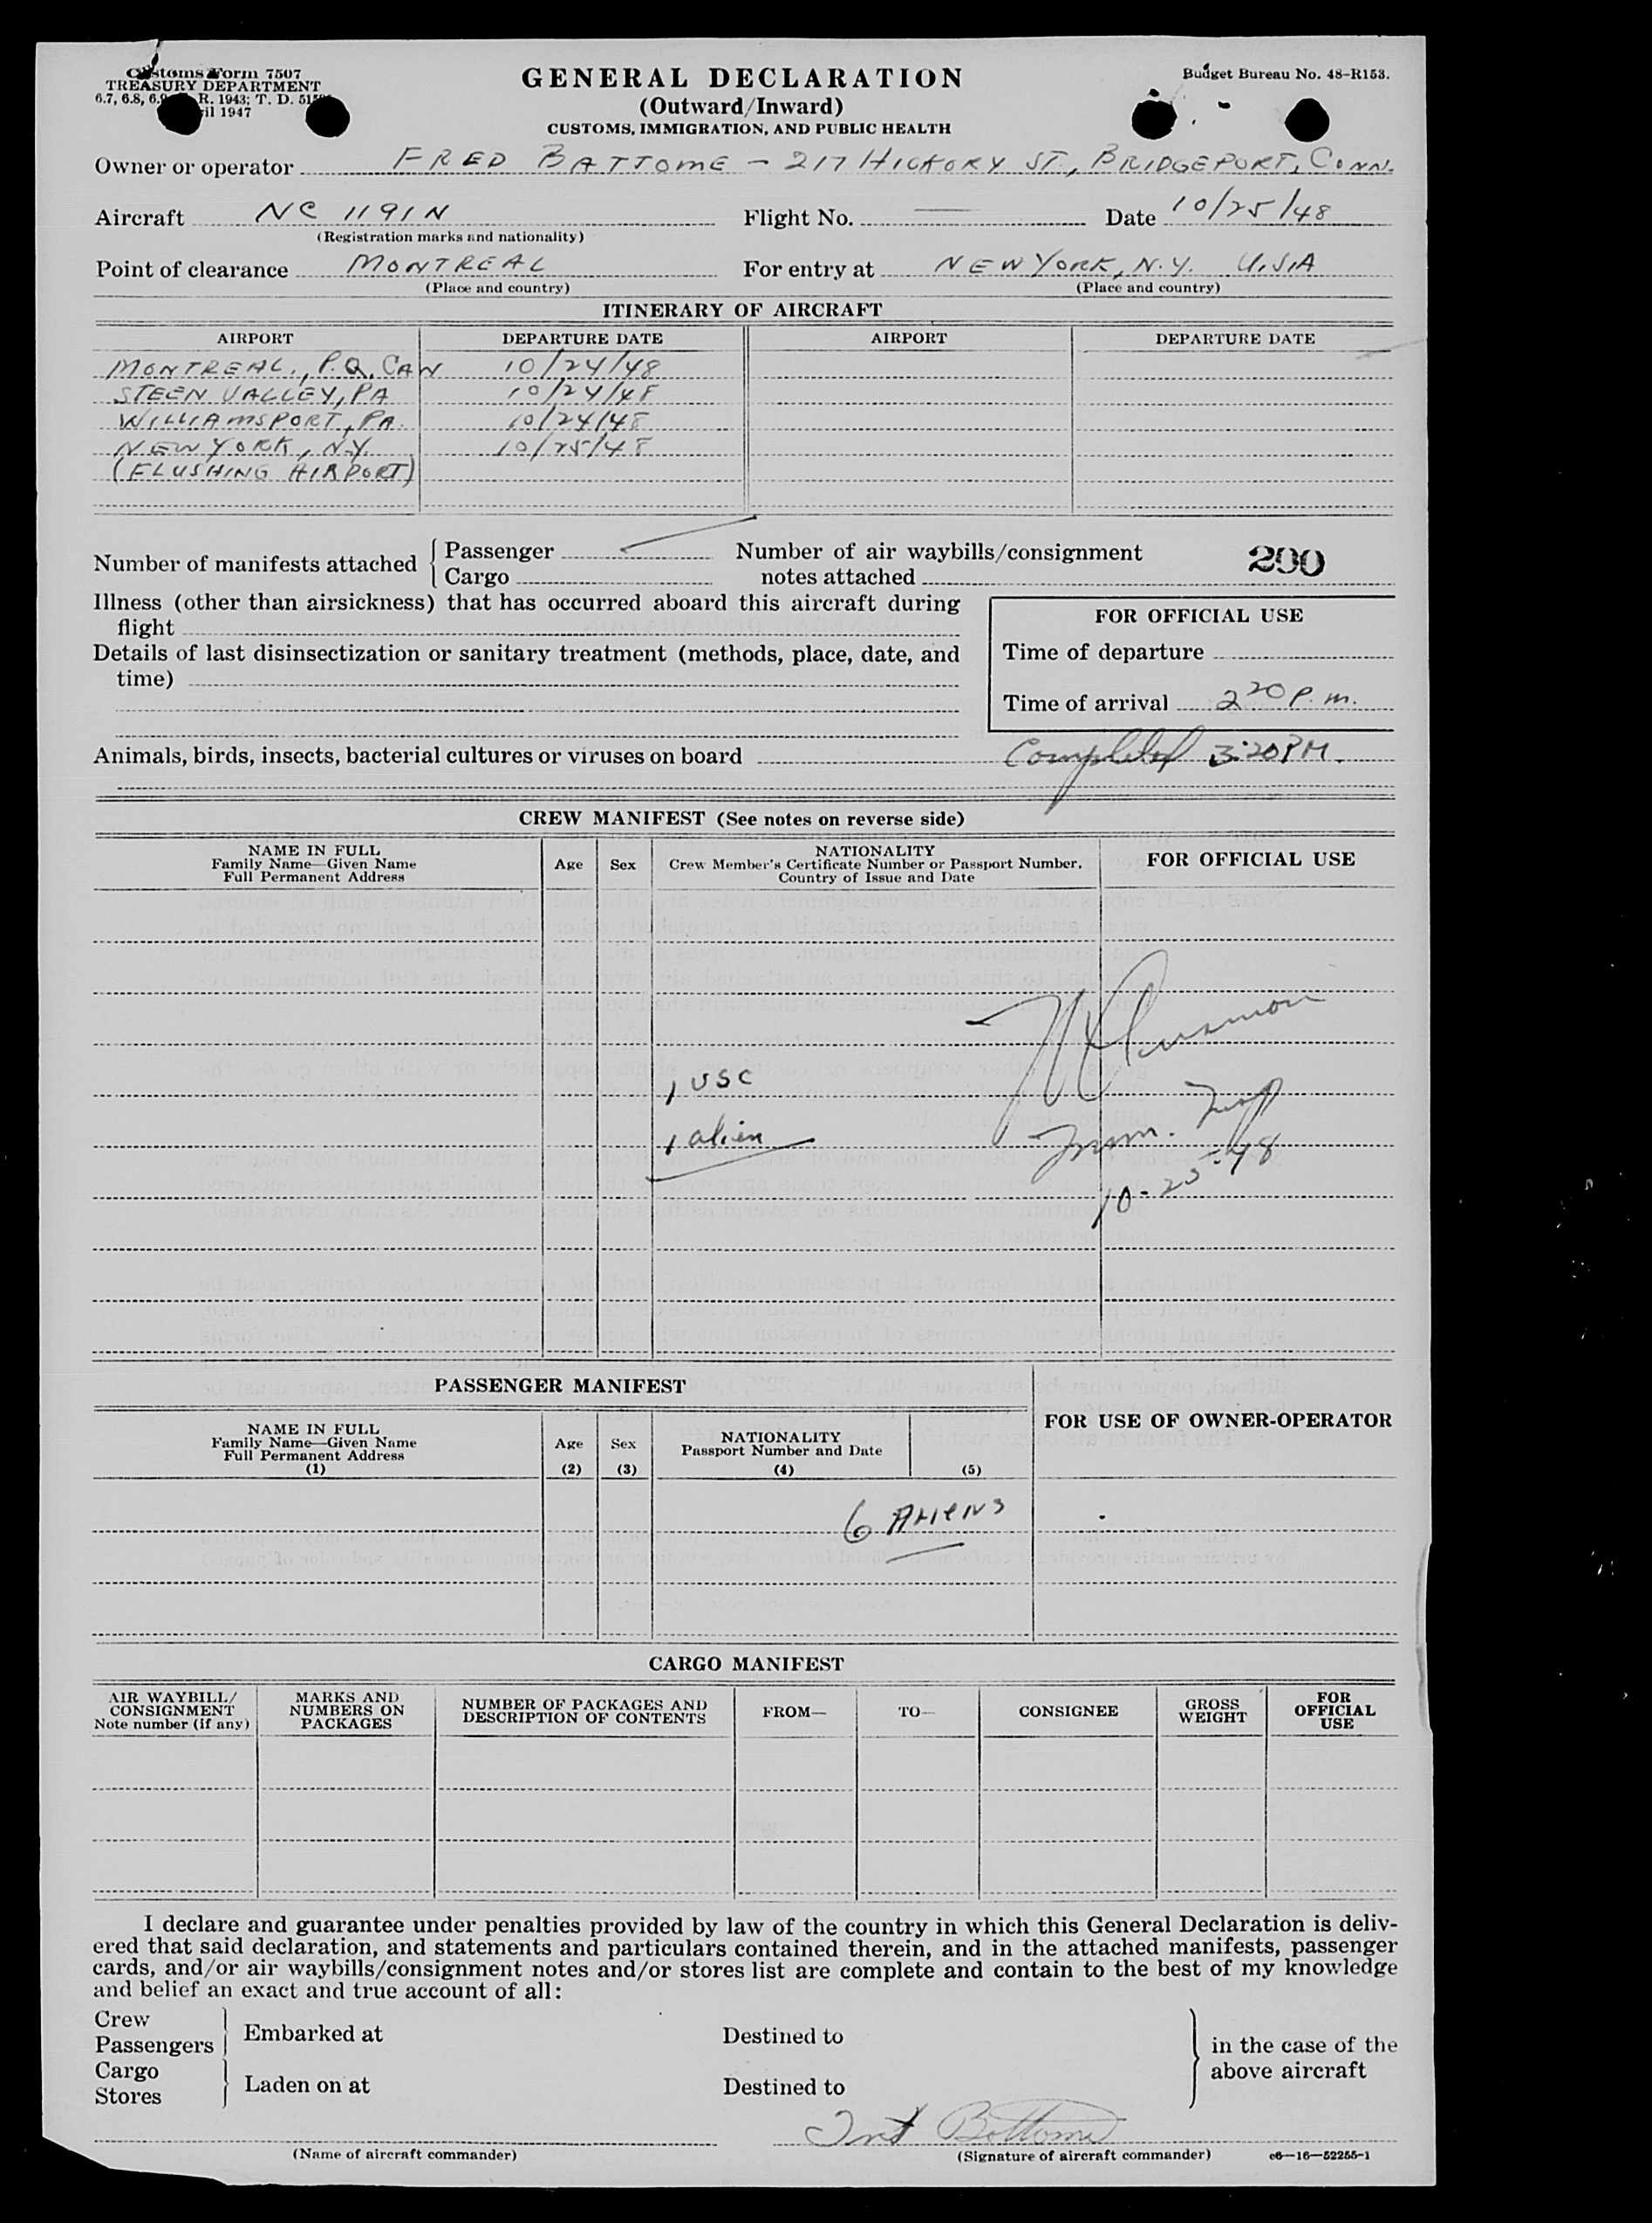 Customs Form 7507
TREASURY DEPARTMENT
6.7, 6.8, 6.9 R. 1943; T. D.
1947
GENERAL DECLARATION
(Outward/Inward)
CUSTOMS, IMMIGRATION, AND PUBLIC HEALTH
Budget Bureau No. 48-R153.
Owner or operator FRED BATTOME - 217 HICKORY ST., BRIDGEPORT, CONN.
Aircraft NC 1191N Flight No. — Date 10/25/48
(Registration marks and nationality)
Point of clearance MONTREAL For entry at NEW YORK, N.Y. U.S.A
(Place and country) (Place and country)
ITINERARY OF AIRCRAFT
AIRPORT DEPARTURE DATE AIRPORT DEPARTURE DATE
MONTREAL., P.Q. CAN 10/24/48
STEEN VALLEY, PA 10/24/48
WILLIAMSPORT, PA. 10/24/48
NEW YORK, N.Y. 10/25/48
(FLUSHING AIRPORT)
Number of manifests attached { Passenger
Cargo
Number of air waybills/consignment
notes attached
200
Illness (other than airsickness) that has occurred aboard this aircraft during
flight
Details of last disinsectization or sanitary treatment (methods, place, date, and
time)
FOR OFFICIAL USE
Time of departure
Time of arrival 2 20 P. m.
Animals, birds, insects, bacterial cultures or viruses on board Completed 3:20 PM.
CREW MANIFEST (See notes on reverse side)
NAME IN FULL
Family Name—Given Name
Full Permanent Address
Age Sex
NATIONALITY
Crew Member's Certificate Number or Passport Number.
Country of Issue and Date
FOR OFFICIAL USE
1 USC
1 alien
Imm. Insp
10-25-48
PASSENGER MANIFEST
NAME IN FULL
Family Name—Given Name
Full Permanent Address
(1)
Age
(2)
Sex
(3)
NATIONALITY
Passport Number and Date
(4) (5)
FOR USE OF OWNER-OPERATOR
6 Aliens
CARGO MANIFEST
AIR WAYBILL/
CONSIGNMENT
Note number (if any)
MARKS AND
NUMBERS ON
PACKAGES
NUMBER OF PACKAGES AND
DESCRIPTION OF CONTENTS
FROM— TO— CONSIGNEE
GROSS
WEIGHT
FOR
OFFICIAL
USE
I declare and guarantee under penalties provided by law of the country in which this General Declaration is deliv-
ered that said declaration, and statements and particulars contained therein, and in the attached manifests, passenger
cards, and/or air waybills/consignment notes and/or stores list are complete and contain to the best of my knowledge
and belief an exact and true account of all:
Crew
Passengers
Embarked at Destined to
Cargo
Stores
Laden on at Destined to
in the case of the
above aircraft
(Name of aircraft commander) (Signature of aircraft commander) c6—16—52255-1